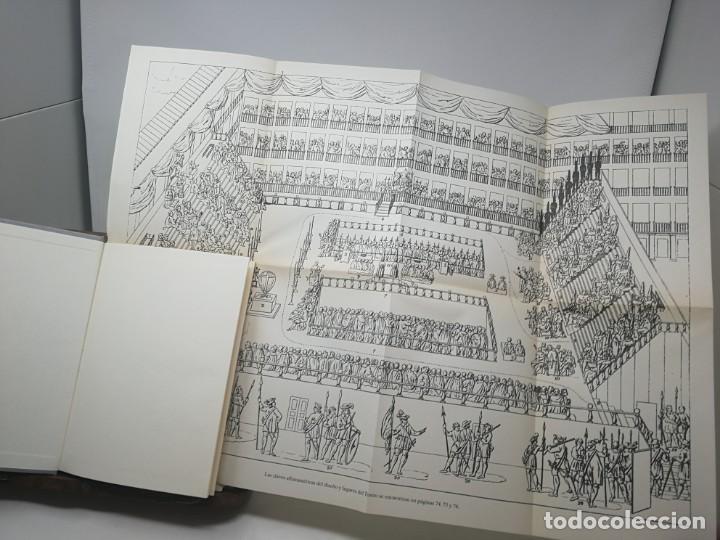 Las claves alfanuméricas del diseño y lugares del Teatro se encuentran en páginas 74, 75 y 76.
todocoleccion.net